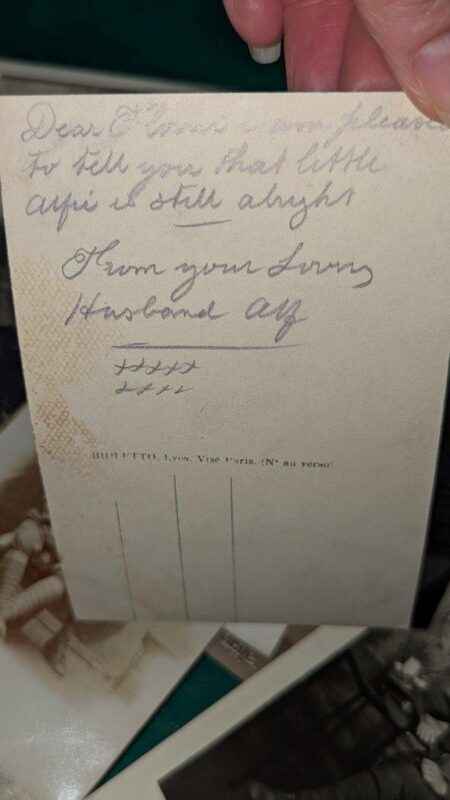 Dear i am please
to tell you that little
Alfie is still alright
From your Loving
Husband Alf
xxxxx
xxxx
Lyon. Visé Paris. (N° au verso)